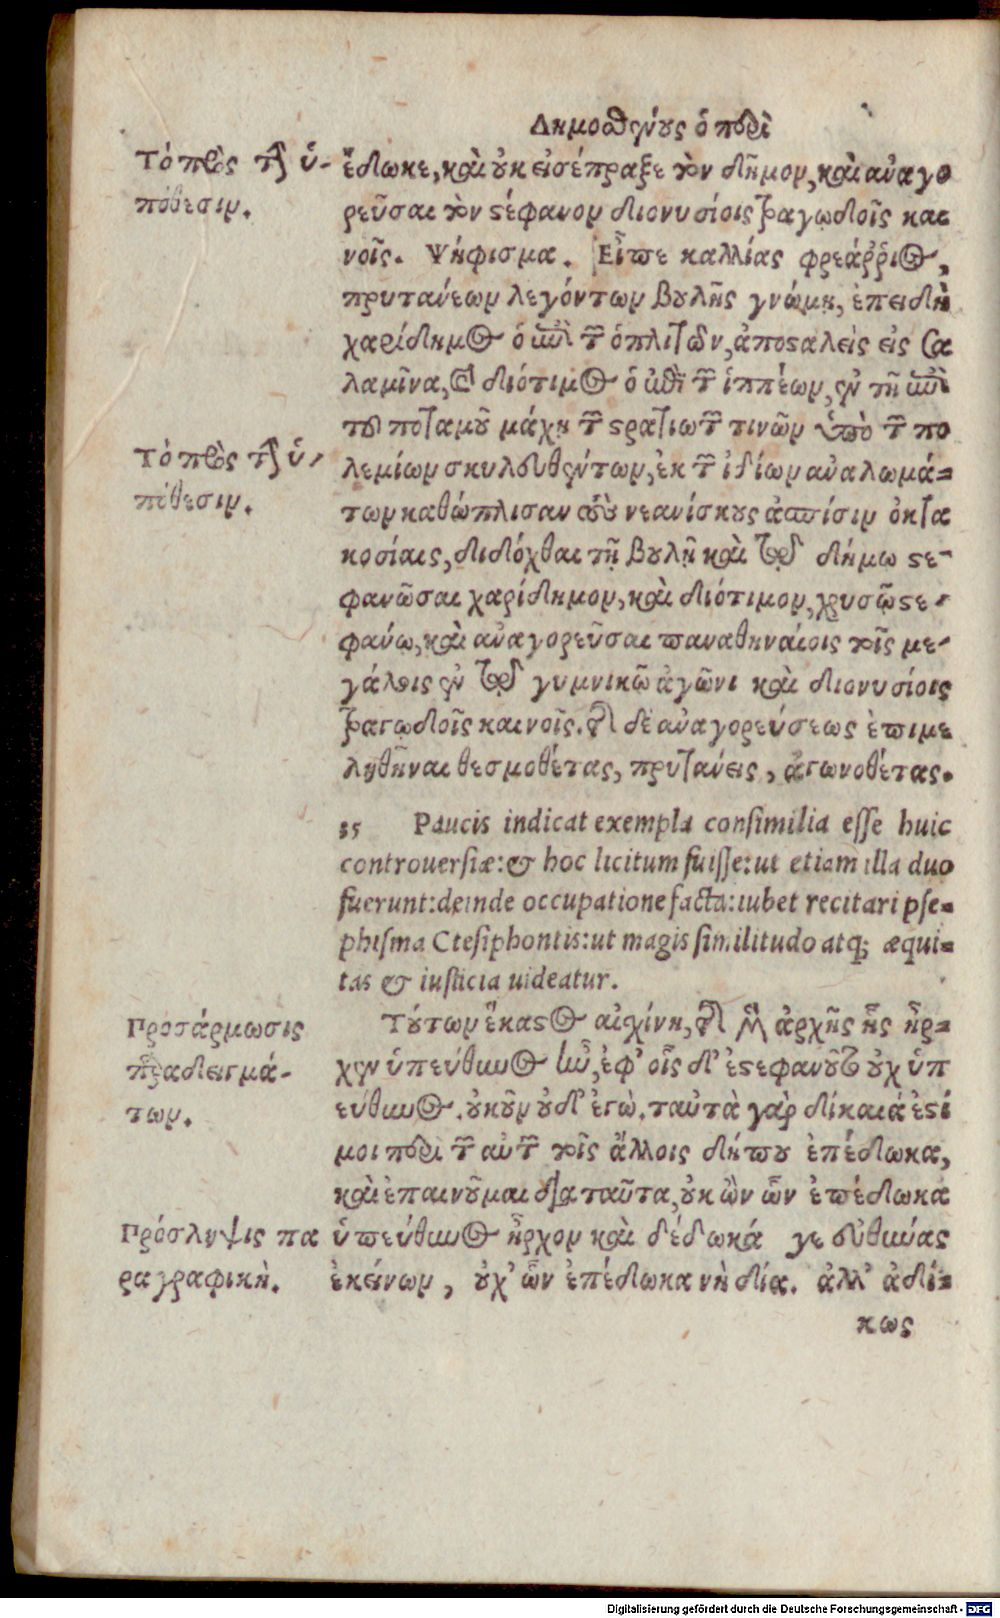 Δημοσθένους ὁ περὶ
Τὸ πρὸς τὴν ὑ-
πόθεσιν.
ἔδωκε, καὶ οὐκ εἰσέπραξε τὸν δῆμον, καὶ ἀναγο
ρεῦσαι τὸν στέφανον διονυσίοις τραγῳδοῖς και
νοῖς. Ψήφισμα. Εἶπε καλλίας φρεάῤῥιος,
πρυτανέων λεγόντων βουλῆς γνώμη, ἐπειδὴ
χαρίδημος ὁ ἐπὶ τῶν ὁπλιτῶν, ἀποσταλεὶς εἰς Σα
λαμῖνα, καὶ διότιμος ὁ ἐπὶ τῶν ἱππέων, ἐν τῇ ἐπὶ
τοῦ ποταμοῦ μάχῃ τῶν στρατιωτῶν τινῶν ὑπὸ τῶν πο
Τὸ πρὸς τὴν ὑ-
πόθεσιν.
λεμίων σκυλευθέντων, ἐκ τῶν ἰδίων ἀναλωμά=
των καθώπλισαν τοὺς νεανίσκους ἀσπίσιν ὀκτα
κοσίαις, δεδόχθαι τῇ βουλῇ καὶ τῷ δήμω στε-
φανῶσαι χαρίδημον, καὶ διότιμον, χρυσῷ στε-
φάνω, καὶ ἀναγορεῦσαι παναθηναίοις τοῖς με-
γάλοις ἐν τῷ γυμνικῷ ἀγῶνι καὶ διονυσίοις
τραγῳδοῖς καινοῖς. τῆς δὲ ἀναγορεύσεως ἐπιμε
ληθῆναι θεσμοθέτας, πρυτάνεις, ἀγωνοθέτας.
35 Paucis indicat exempla consimilia esse huic
controuersiæ: & hoc licitum fuisse: ut etiam illa duo
fuerunt: deinde occupatione facta: iubet recitari pse=
phisma Ctesiphontis: ut magis similitudo atq; æqui=
tas & iusticia uideatur.
Προσάρμωσις
παραδειγμά-
των.
Τούτων ἕκαστος αἰσχίνη, τῆς μὲν ἀρχῆς ἧς ἦρ=
χεν ὑπεύθυνος ἦν, ἐφ' οἷς δ' ἐστεφανοῦτο οὐχ ὑπ
εύθυνος. οὐκοῦν οὐδ' ἐγὼ. ταῦτὰ γὰρ δίκαιά ἐστί
μοι περὶ τῶν αὐτῶν τοῖς ἄλλοις δήπου ἐπέδωκα,
καὶ ἐπαινοῦμαι διὰ ταῦτα, οὐκ ὢν ὧν ἐπέδωκα
Πρόσληψις πα
ραγραφικὴ.
ὑπεύθυνος ἦρχον καὶ δέδωκά γε εὐθύνας
ἐκείνων, οὐχ' ὧν ἐπέδωκα νὴ δία. ἀλλ' ἀδί=
κως
Digitalisierung gefördert durch die Deutsche Forschungsgemeinschaft - DFG